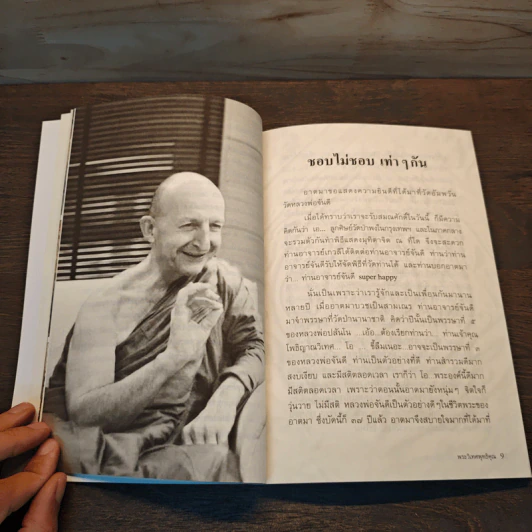 ชอบไม่ชอบ เท่า ๆ กัน
อาตมาขอแสดงความยินดีที่ได้มาที่วัดอัมพวัน
วัดหลวงพ่อขันตี
เมื่อได้ทราบว่าเราจะรับสมณศักดิ์ในวันนี้ ก็มีความ
คิดกันว่า เอ... ลูกศิษย์วัดป่าพงในกรุงเทพฯ และในภาคกลาง
จะรวมตัวกันทำพิธีแสดงมุทิตาจิต ณ ที่ใด จึงจะสะดวก
ท่านอาจารย์เกวลีได้ติดต่อท่านอาจารย์จันดี ท่านว่าท่าน
อาจารย์จันดีรับให้จัดพิธีที่วัดท่านได้ และท่านบอกอาตมา
ว่า... ท่านอาจารย์จันดี super happy
นั่นเป็นเพราะว่าเรารู้จักและเป็นเพื่อนกันมานาน
หลายปี เมื่ออาตมาบวชเป็นสามเณร ท่านอาจารย์จันดี
มาจำพรรษาที่วัดป่านานาชาติ คิดว่าปีนั้นเป็นพรรษาที่ ๕
ของหลวงพ่อปสันโน ...เอ้อ...ต้องเรียกท่านว่า... ท่านเจ้าคุณ
โพธิญาณวิเทศ... โอ ...ขี้ลืมเนอะ อาจจะเป็นพรรษาที่ ๓
ของหลวงพ่อจันดี ท่านเป็นตัวอย่างที่ดี ท่านสำรวมดีมาก
สงบเงียบ และมีสติตลอดเวลา เราก็ว่า โอ...พระองค์นี้ดีมาก
มีสติตลอดเวลา เพราะว่าตอนนั้นอาตมายังหนุ่มๆ จิตใจก็
วุ่นวาย ไม่มีสติ หลวงพ่อจันดีเป็นตัวอย่างดีๆในชีวิตพระของ
อาตมา ซึ่งบัดนี้ก็ ๓๗ ปีแล้ว อาตมาจึงสบายใจมากที่ได้มาที่
พระวิเทศพุทธิคุณ 9